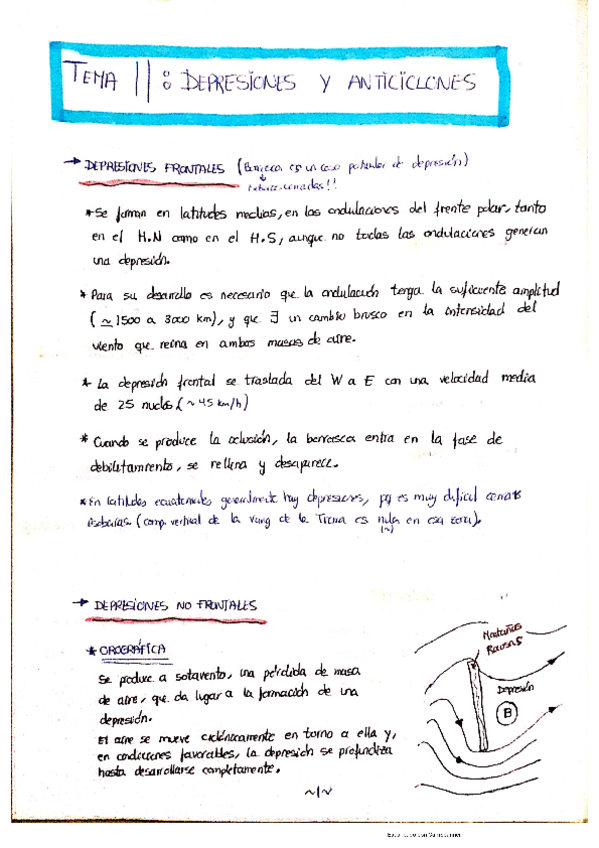 TEMA 11: DEPRESIONES Y ANTICICLONES
→ DEPRESIONES FRONTALES (Borrasca es un caso particular de depresión)
cerradas!!
* Se forman en latitudes medias, en las ondulaciones del frente polar, tanto
en el H.N como en el H.S, aunque no todas las ondulaciones generan
una depresión.
* Para su desarrollo es necesario que la ondulación tenga la suficiente amplitud
(≃ 1500 a 3000 km), y que ∃ un cambio brusco en la intensidad del
viento que reina en ambas masas de aire.
* La depresión frontal se traslada del W a E con una velocidad media
de 25 nudos (~45 km/h)
* Cuando se produce la oclusión, la borrasca entra en la fase de
debilitamiento, se rellena y desaparece.
* En latitudes ecuatoriales generalmente hay depresiones, pq es muy difícil cerrar
isobaras. (comp. vertical de la de la Tierra es nula en esa zona).
→ DEPRESIONES NO FRONTALES
* OROGRÁFICA
Se produce a sotavento, una pérdida de masa
de aire, que da lugar a la formación de una
depresión.
El aire se mueve ciclónicamente en torno a ella y,
en condiciones favorables, la depresión se profundiza
hasta desarrollarse completamente.
Montañas
Rocosas
Depresión
B
~1~